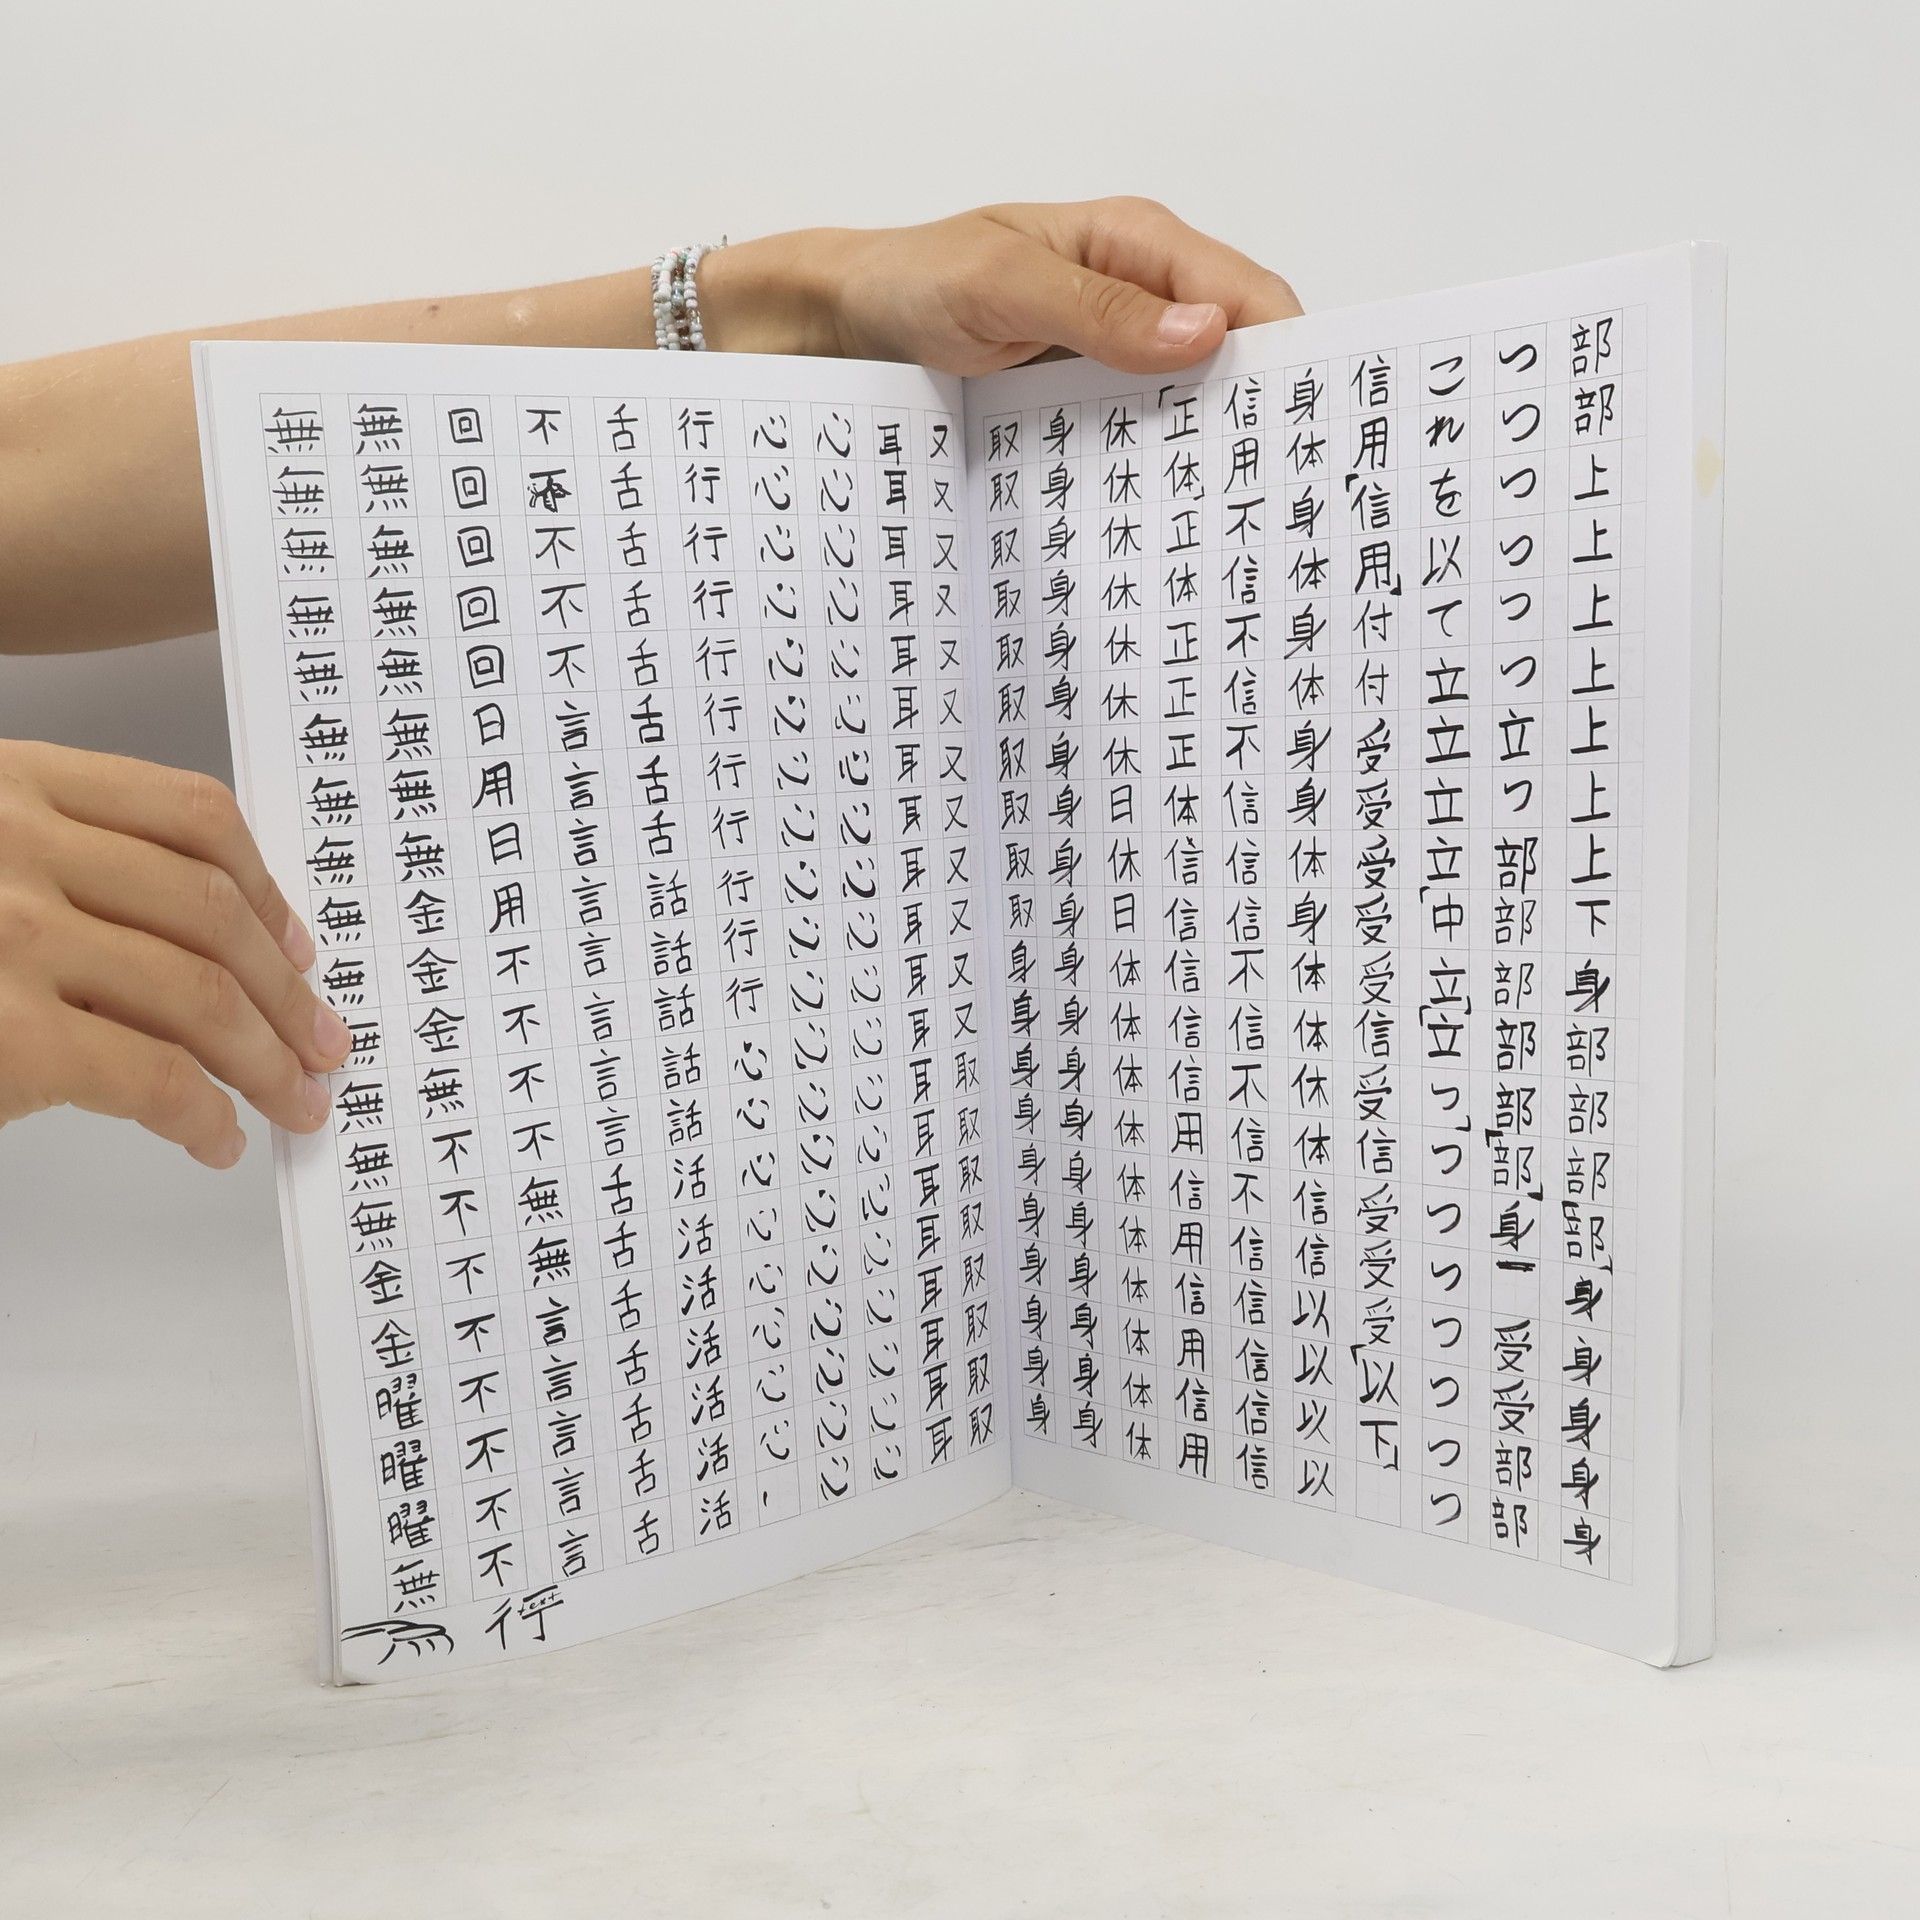 部部上上上上上上上下身部部部「部」身身身身身
つつつつつつ立つ部部部部部「部」身ー 受受部部
これを以て立立立立「中立」「立つ」つつつつつつつ
信用「信用」付付受受受受受信受信受受受「以下」
身体身体身体身身体身体体休体信信以以以以
信用不信不信不信信信不信不信不信信信信信
「正体」正体正正正体信信信信信用信用信用信用
休休休休休休休日休日体体体体体体体体体体
身身身身身身身身身身身身身身身身身身身身
取取取取取取取取取取身身身身身身身身身身
又又又又又又又又又又又又取取取取取取取取
耳耳耳耳耳耳耳耳耳耳耳耳耳耳耳耳耳耳耳耳
心心心心心心心心心心心心心心心心心心心心
心心心心心心心心心心心心心心心心心心心心
行行行行行行行行行行行心心心心心心心心
舌舌舌舌舌舌舌舌話話話話話活活活活活活活
不不不不言言言言言言言言舌舌舌舌舌舌舌
回回回回回日用日用不不不不無無言言言言言
無無無無無無無無金金金無不不不不不不不不
無無無無無無無無無無無無無無金金曜曜曜無
行
text